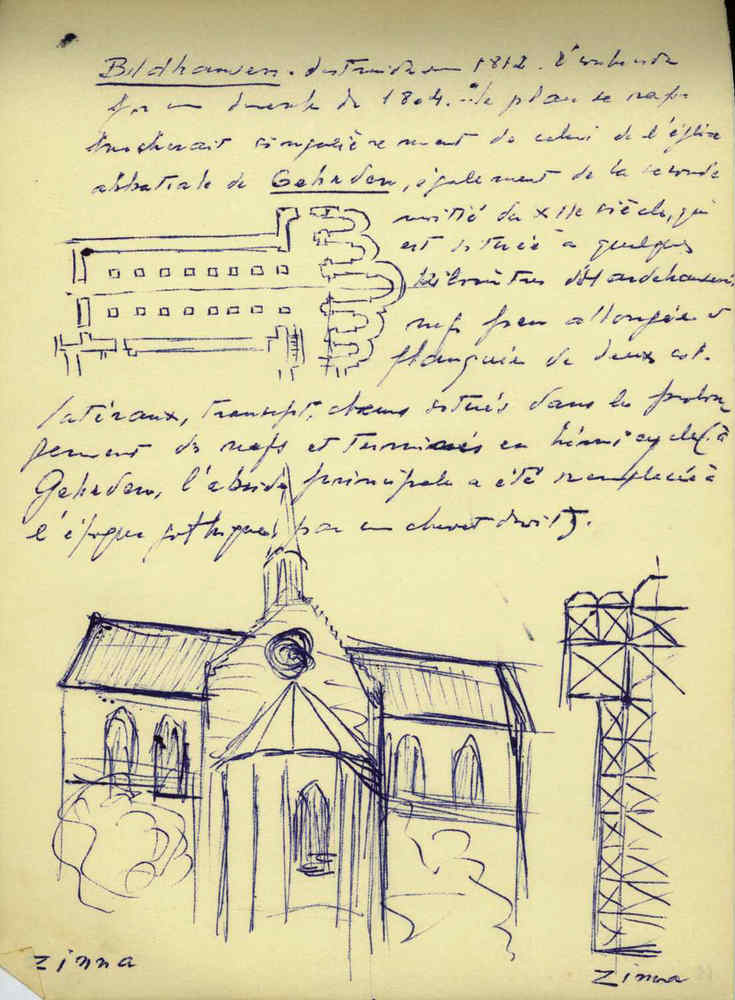 Bildhausen. destruite en 1812.
 de 1804. le plan se rap-
procherait singulièrement de celui de l'église
abbatiale de Gehaden, également de la seconde
moitié du XIIe siècle, qui
est située à quelques
kilomètres d'Hardehausen,
nef peu allongée et
flanquée de deux col-
latéraux, transept, chœurs situés dans le prolon-
gement des nefs et terminés en hémicycle (à
Gehaden, l'abside principale a été remplacée à
l'époque gothique par un chevet droit).
Zinna
Zinna